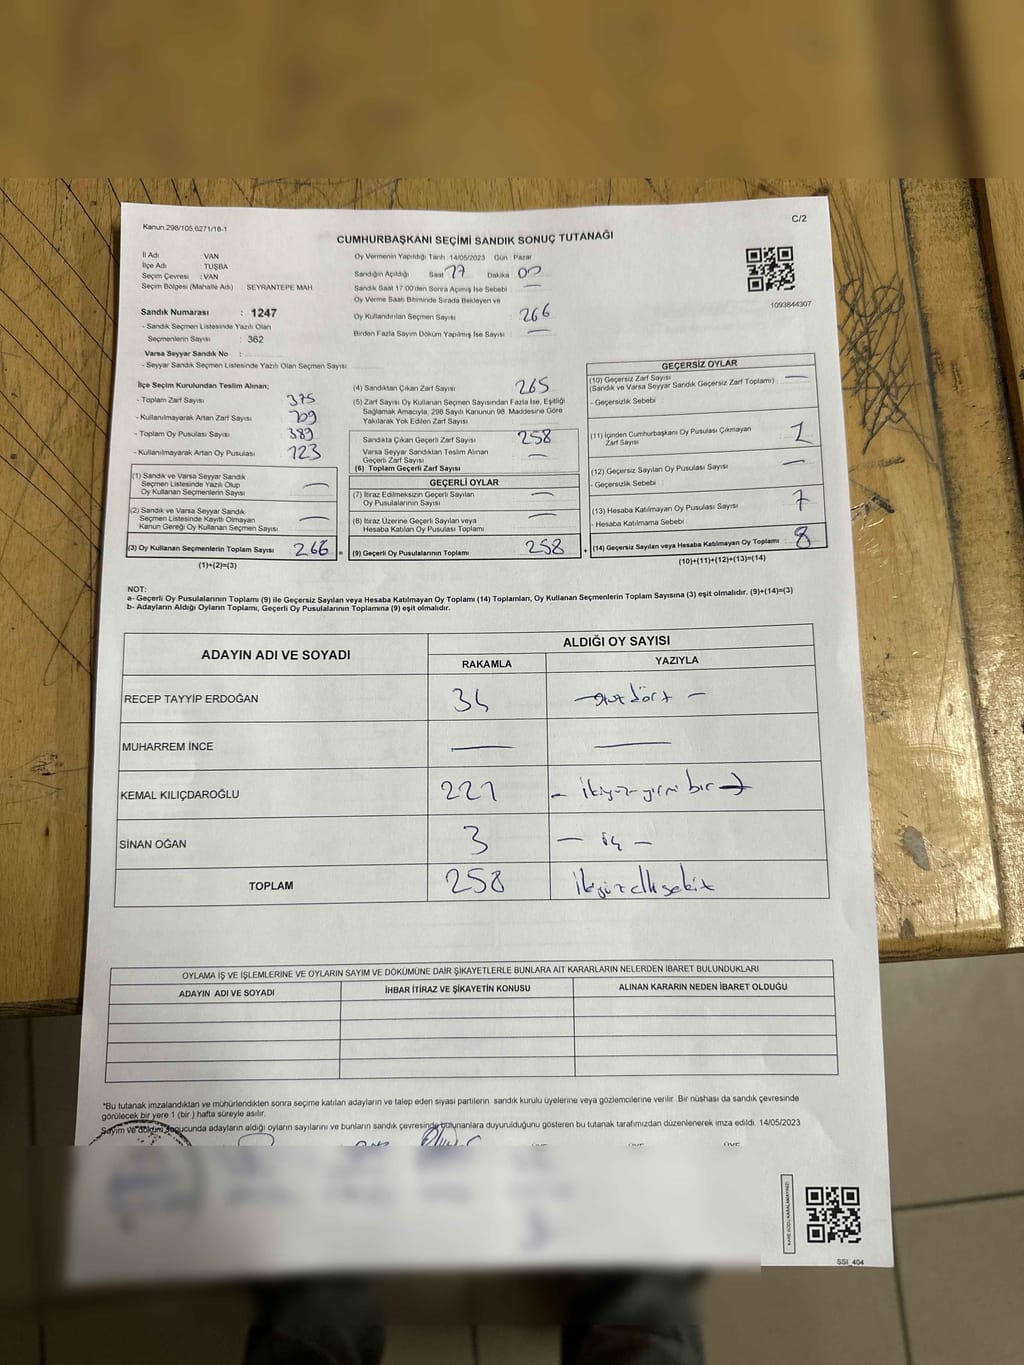 C/2
Kanun.298/105,6271/16-1
CUMHURBAŞKANI SEÇİMİ SANDIK SONUÇ TUTANAĞI
İl Adı : VAN
İlçe Adı : TUŞBA
Seçim Çevresi : VAN
Seçim Bölgesi (Mahalle Adı) : SEYRANTEPE MAH.
Sandık Numarası : 1247
- Sandık Seçmen Listesinde Yazılı Olan
Seçmenlerin Sayısı : 362
Varsa Seyyar Sandık No :
- Seyyar Sandık Seçmen Listesinde Yazılı Olan Seçmen Sayısı :
Oy Vermenin Yapıldığı Tarih 14/05/2023 Gün Pazar
Sandığın Açıldığı Saat 17 Dakika 00
Sandık Saat 17:00'den Sonra Açılmış İse Sebebi —
Oy Verme Saati Bitiminde Sırada Bekleyen ve
Oy Kullandırılan Seçmen Sayısı : 266
Birden Fazla Sayım Döküm Yapılmış İse Sayısı : —
1093844307
İlçe Seçim Kurulundan Teslim Alınan;
- Toplam Zarf Sayısı : 375
- Kullanılmayarak Artan Zarf Sayısı : 109
- Toplam Oy Pusulası Sayısı : 389
- Kullanılmayarak Artan Oy Pusulası : 123
(1) Sandık ve Varsa Seyyar Sandık
Seçmen Listesinde Yazılı Olup
Oy Kullanan Seçmenlerin Sayısı —
(2) Sandık ve Varsa Seyyar Sandık
Seçmen Listesinde Kayıtlı Olmayan
Kanun Gereği Oy Kullanan Seçmen Sayısı —
(3) Oy Kullanan Seçmenlerin Toplam Sayısı 266 =
(1)+(2)=(3)
(4) Sandıktan Çıkan Zarf Sayısı 265
(5) Zarf Sayısı Oy Kullanan Seçmen Sayısından Fazla İse, Eşitliği
Sağlamak Amacıyla, 298 Sayılı Kanunun 98. Maddesine Göre
Yakılarak Yok Edilen Zarf Sayısı
Sandıkta Çıkan Geçerli Zarf Sayısı 258
Varsa Seyyar Sandıktan Teslim Alınan
Geçerli Zarf Sayısı —
(6) Toplam Geçerli Zarf Sayısı
GEÇERLİ OYLAR
(7) İtiraz Edilmeksizin Geçerli Sayılan
Oy Pusulalarının Sayısı —
(8) İtiraz Üzerine Geçerli Sayılan veya
Hesaba Katılan Oy Pusulası Toplamı —
(9) Geçerli Oy Pusulalarının Toplamı 258 +
GEÇERSİZ OYLAR
(10) Geçersiz Zarf Sayısı —
(Sandık ve Varsa Seyyar Sandık Geçersiz Zarf Toplamı)
- Geçersizlik Sebebi
(11) İçinden Cumhurbaşkanı Oy Pusulası Çıkmayan 1
Zarf Sayısı
(12) Geçersiz Sayılan Oy Pusulası Sayısı —
- Geçersizlik Sebebi
(13) Hesaba Katılmayan Oy Pusulası Sayısı 7
- Hesaba Katılmama Sebebi
(14) Geçersiz Sayılan veya Hesaba Katılmayan Oy Toplamı : 8
(10)+(11)+(12)+(13)=(14)
NOT:
a- Geçerli Oy Pusulalarının Toplamı (9) ile Geçersiz Sayılan veya Hesaba Katılmayan Oy Toplamı (14) Toplamları, Oy Kullanan Seçmenlerin Toplam Sayısına (3) eşit olmalıdır. (9)+(14)=(3)
b- Adayların Aldığı Oyların Toplamı, Geçerli Oy Pusulalarının Toplamına (9) eşit olmalıdır.
ADAYIN ADI VE SOYADI
ALDIĞI OY SAYISI
RAKAMLA YAZIYLA
RECEP TAYYİP ERDOĞAN 34 — otuz dört —
MUHARREM İNCE — —
KEMAL KILIÇDAROĞLU 221 — ikiyüz yirmi bir —
SİNAN OĞAN 3 — üç —
TOPLAM 258 ikiyüz elli sekiz
OYLAMA İŞ VE İŞLEMLERİNE VE OYLARIN SAYIM VE DÖKÜMÜNE DAİR ŞİKAYETLERLE BUNLARA AİT KARARLARIN NELERDEN İBARET BULUNDUKLARI
ADAYIN ADI VE SOYADI İHBAR İTİRAZ VE ŞİKAYETİN KONUSU ALINAN KARARIN NEDEN İBARET OLDUĞU
*Bu tutanak imzalandıktan ve mühürlendikten sonra seçime katılan adayların ve talep eden siyasi partilerin sandık kurulu üyelerine veya gözlemcilerine verilir. Bir nüshası da sandık çevresinde
görülecek bir yere 1 (bir) hafta süreyle asılır.
Sayım ve döküm sonucunda adayların aldığı oyların sayılarını ve bunların sandık çevresinde bulunanlara duyurulduğunu gösteren bu tutanak tarafımızdan düzenlenerek imza edildi. 14/05/2023
KARE KODU KARALAMAYINIZ!
SSI_404